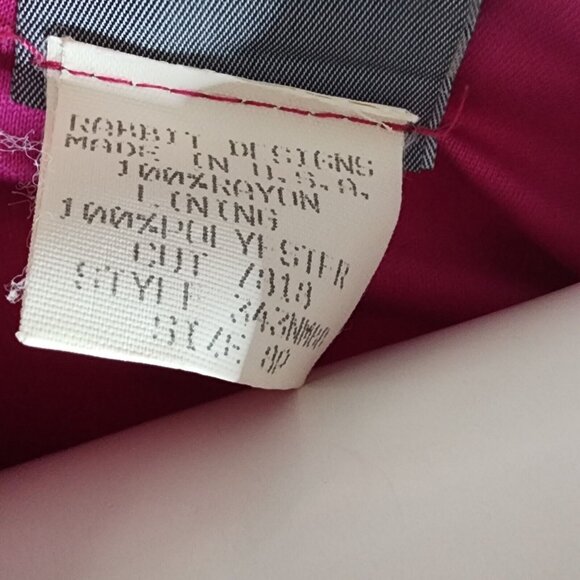 RABBIT DESIGNS
MADE IN U.S.A.
100%RAYON
LINING
100%POLYESTER
CUT 7818
STYLE
SIZE 8P